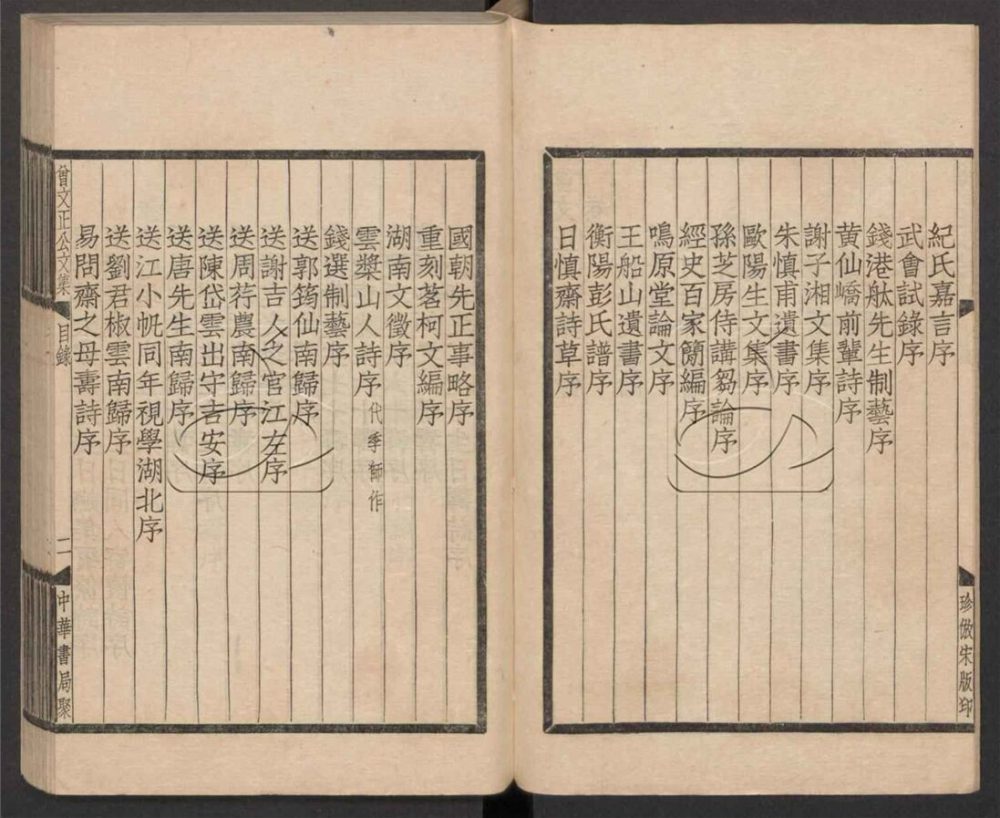 紀氏嘉言序
武會試錄序
錢港舫先生制藝序
黃仙嶠前輩詩序
謝子湘文集序
朱慎甫遺書序
歐陽生文集序
孫芝房侍講芻論序
經史百家簡編序
鳴原堂論文序
王船山遺書序
衡陽彭氏譜序
日慎齋詩草序
珍倣宋版印
國朝先正事略序
重刻茗柯文編序
湖南文徵序
雲槳山人詩序 代季師作
錢選制藝序
送郭筠仙南歸序
送謝吉人之官江左序
送周荇農南歸序
送陳岱雲出守吉安序
送唐先生南歸序
送江小帆同年視學湖北序
送劉君椒雲南歸序
易問齋之母壽詩序
曾文正公文集 目錄 二 中華書局聚